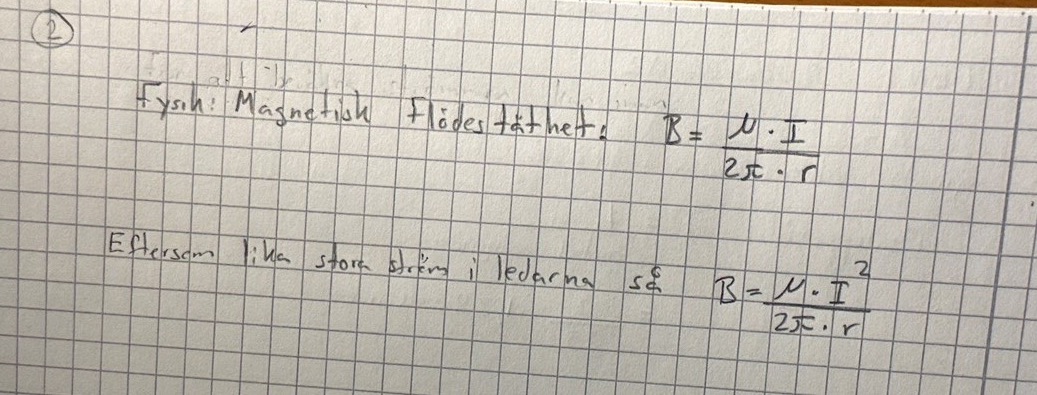 2
Fysik: Magnetisk flödestäthet: B = μ · I / 2π · r
Eftersom lika stora ström i ledarna så B = μ · I² / 2π · r